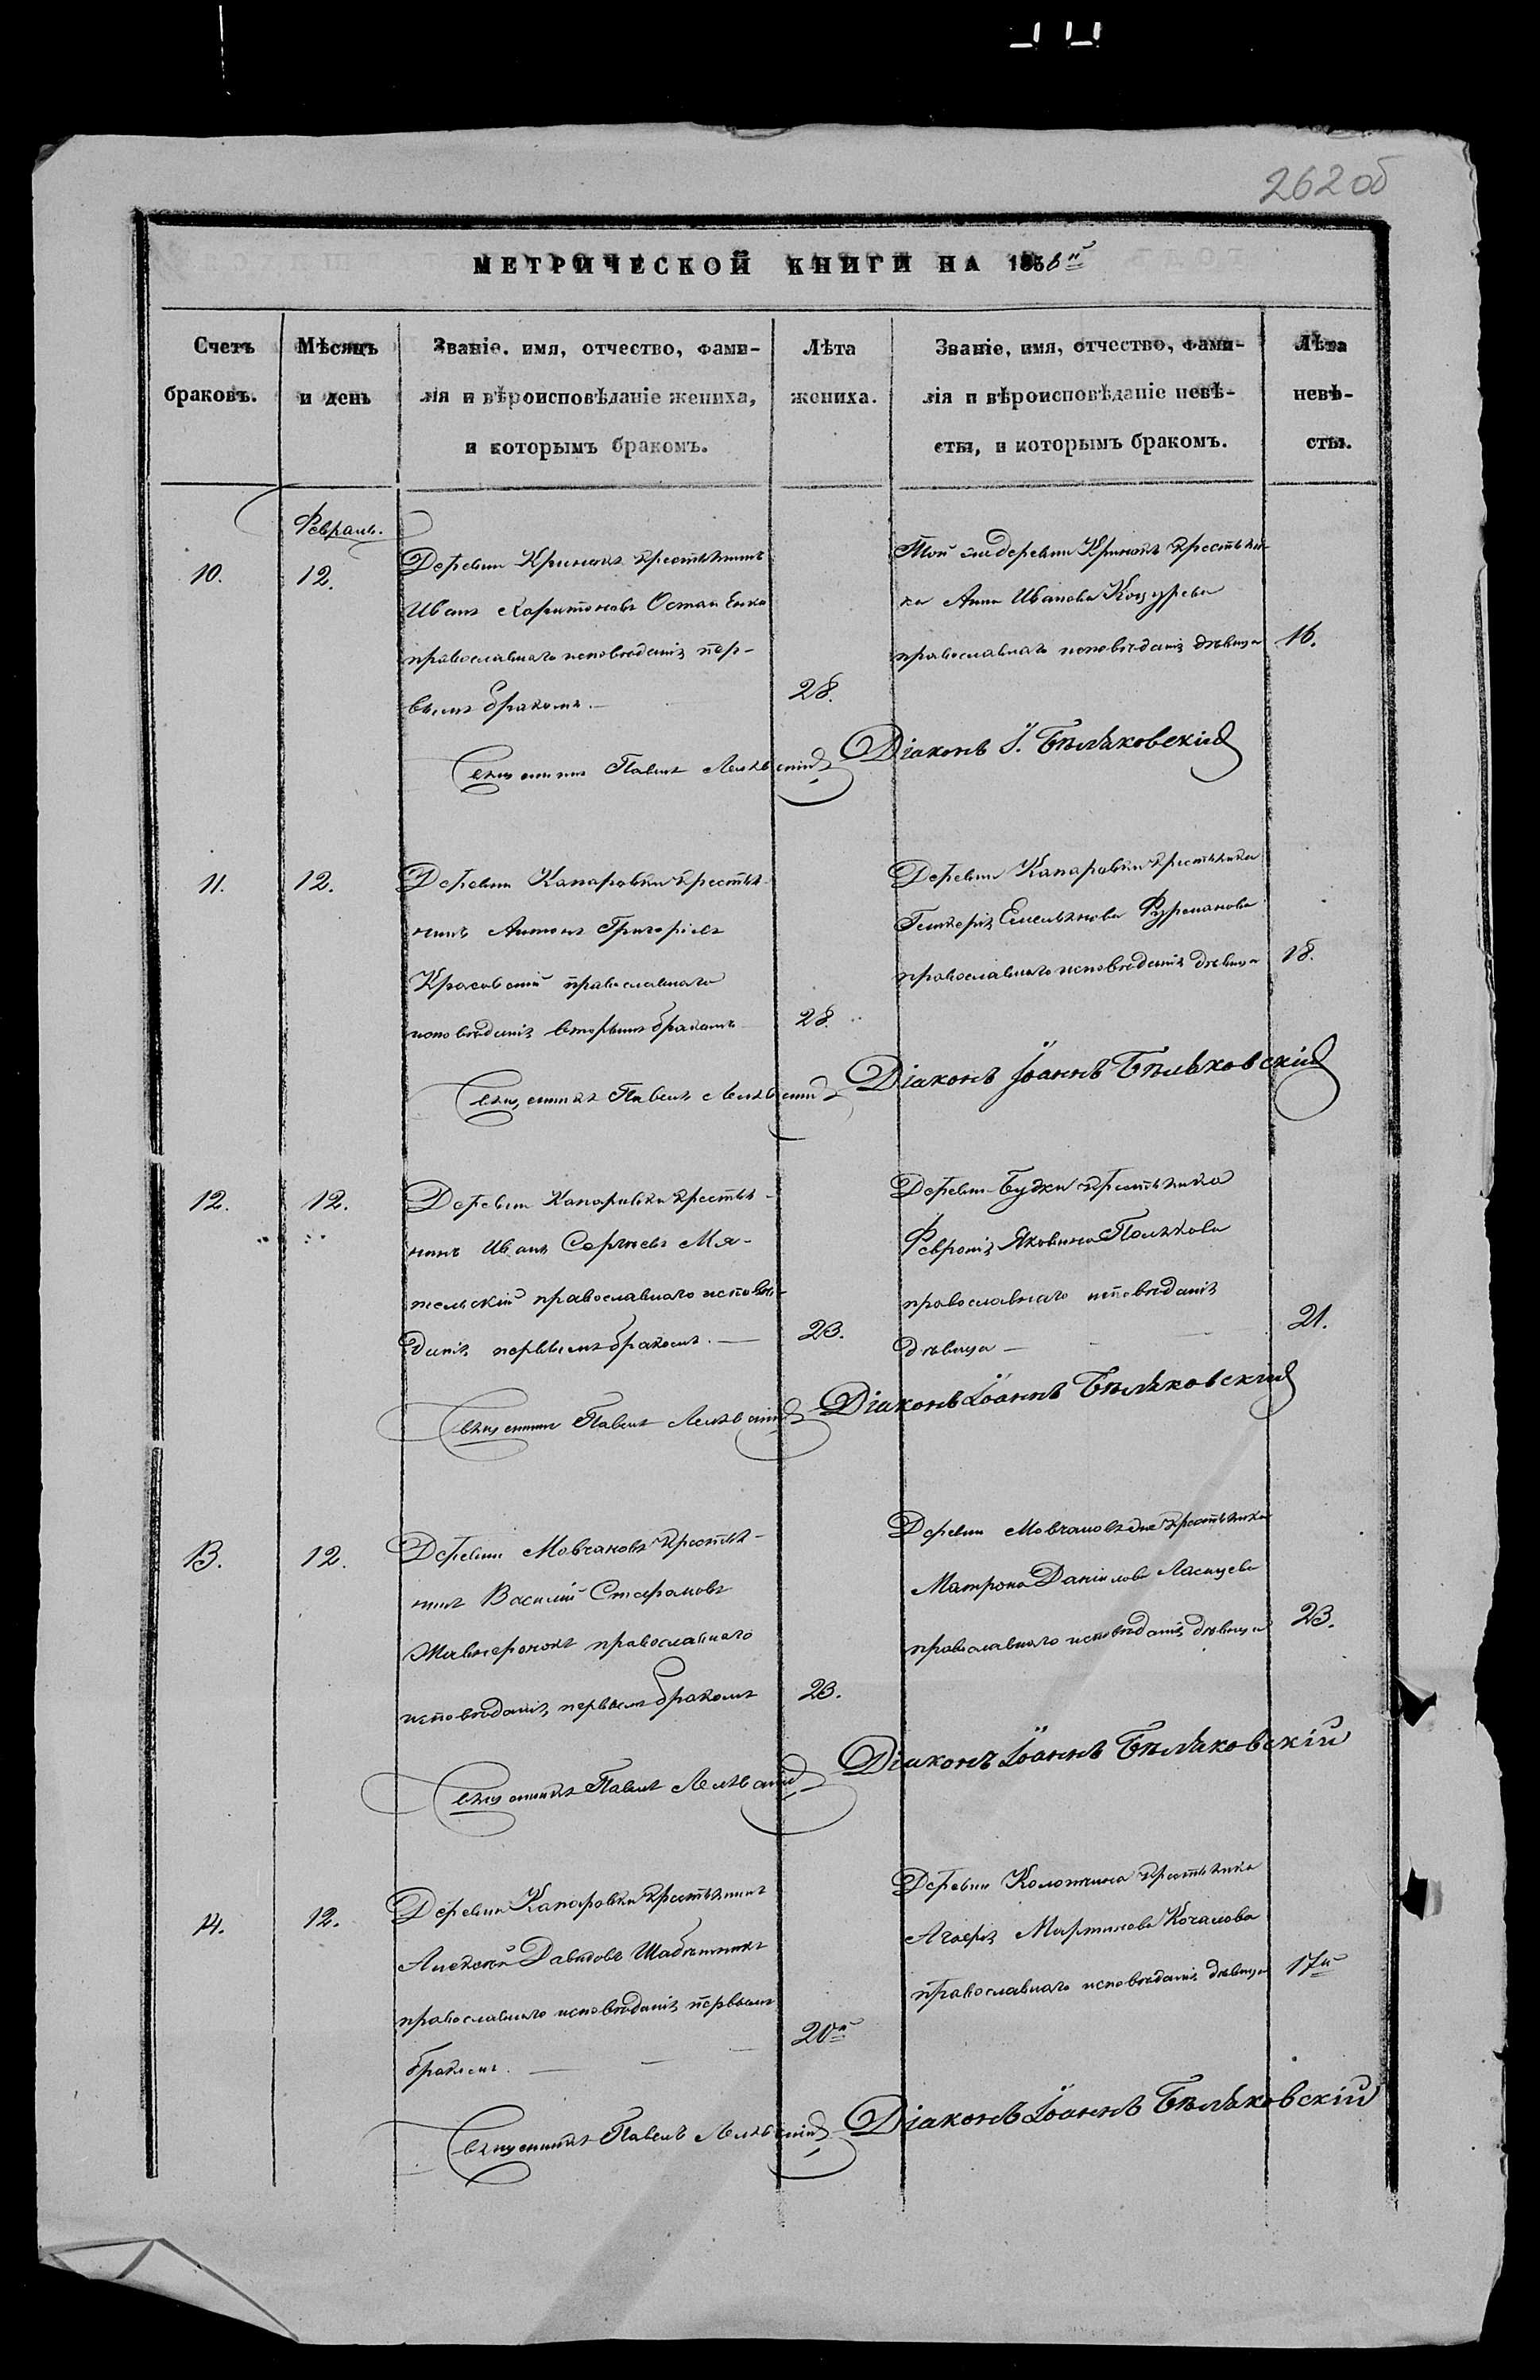 262 об
МЕТРИЧЕСКОЙ КНИГИ НА 1856й
Счетъ браковъ.
Мѣсяцъ и день
Званіе, имя, отчество, фами-
лія и вѣроисповѣданіе жениха,
и которымъ бракомъ.
Лѣта жениха.
Званіе, имя, отчество, фами-
лія и вѣроисповѣданіе невѣ-
сты, и которымъ бракомъ.
Лѣта невѣ-
сты.
Февраль.
10.
12.
Деревни Кринокъ крестьянинъ
Иванъ Харитоновъ Остапенко
православнаго исповѣданія пер-
вымъ бракомъ.
28.
Той же деревни Кринокъ крестьян-
ка Анна Иванова Коцурева
православнаго исповѣданія дѣвица
16.
Священникъ Павелъ
Діаконъ І. Бѣляковскій
11.
12.
Деревни Капаровки крестья-
нинъ Антонъ Григорьевъ
Красовскій православнаго
исповѣданія вторымъ бракомъ
28.
Деревни Капаровки крестьянка
Гликерія Емельянова Фурманова
православнаго исповѣданія дѣвица
18.
Священникъ Павелъ
Діаконъ Іоаннъ Бѣляковскій
12.
12.
Деревни Капаровки крестья-
нинъ Иванъ Сергѣевъ Мя-
тельскій православнаго исповѣ-
данія первымъ бракомъ.
23.
Деревни Будки крестьянка
Февронія Яковлева Полякова
православнаго исповѣданія
дѣвица
21.
Священникъ Павелъ
Діаконъ Іоаннъ Бѣляковскій
13.
12.
Деревни Мовчановъ крестья-
нинъ Василій Стефановъ
православнаго
исповѣданія, первымъ бракомъ
23.
Деревни Мовчановъ же крестьянка
Матрона Данилова
православнаго исповѣданія дѣвица
23.
Священникъ Павелъ
Діаконъ Іоаннъ Бѣляковскій
14.
12.
Деревни Капаровки крестьянинъ
Алексѣй Давидовъ
православнаго исповѣданія первымъ
бракомъ.
20й
Деревни крестьянка
Агафія Мартинова Кочанова
православнаго исповѣданія дѣвица
17й
Священникъ Павелъ
Діаконъ Іоаннъ Бѣляковскій